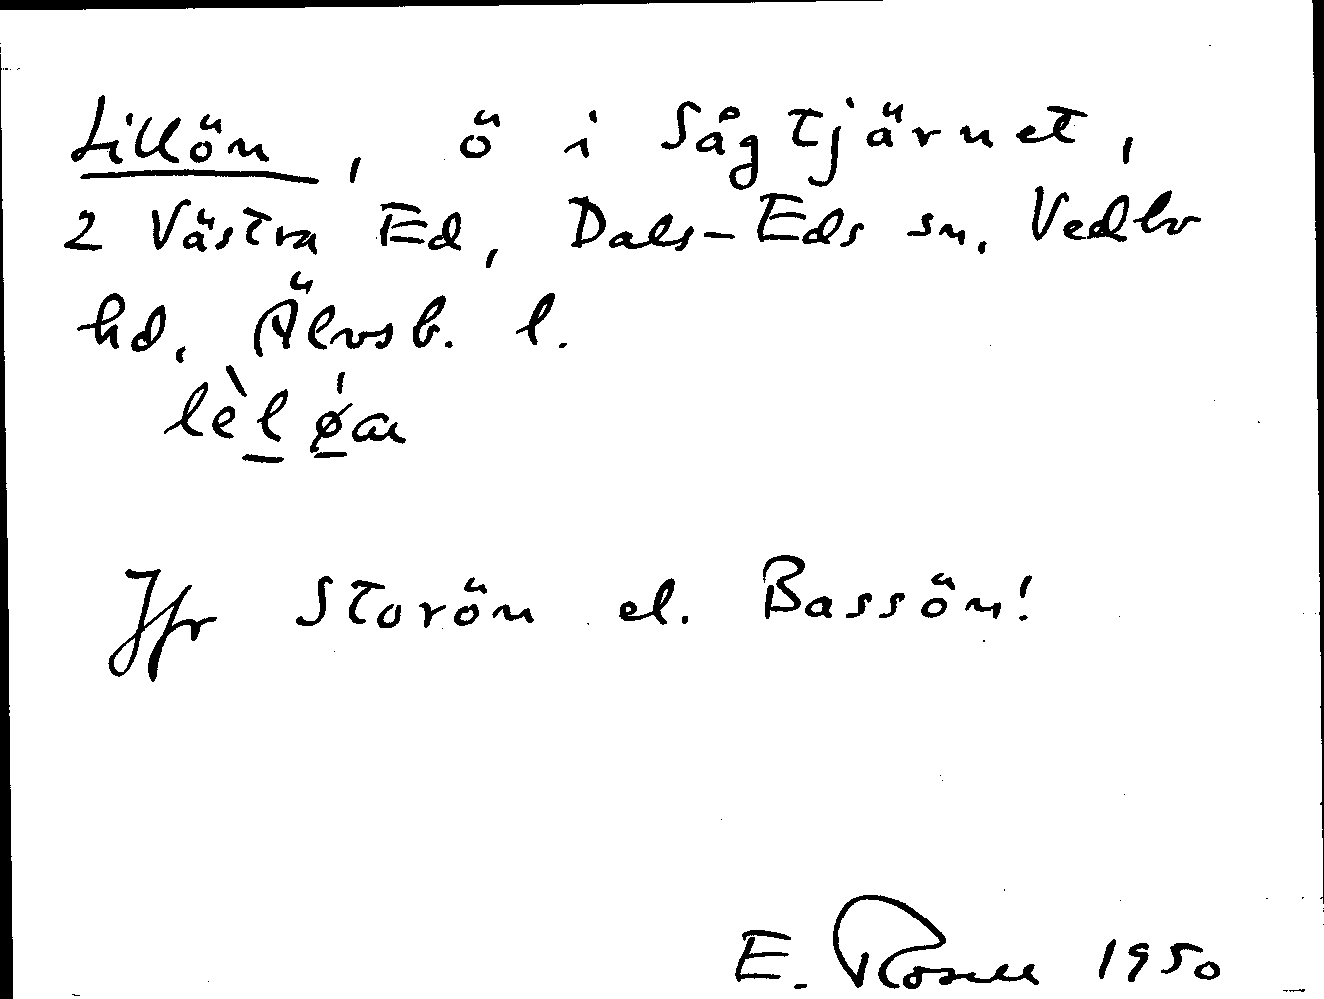 Lillön, ö i Sågtjärnet,
2 Västra Ed, Dals-Eds sn, Vedbo
hd, Älvsb. l.
lèl øa
Jfr Storön el. Bassön!
E. Rosell 1950